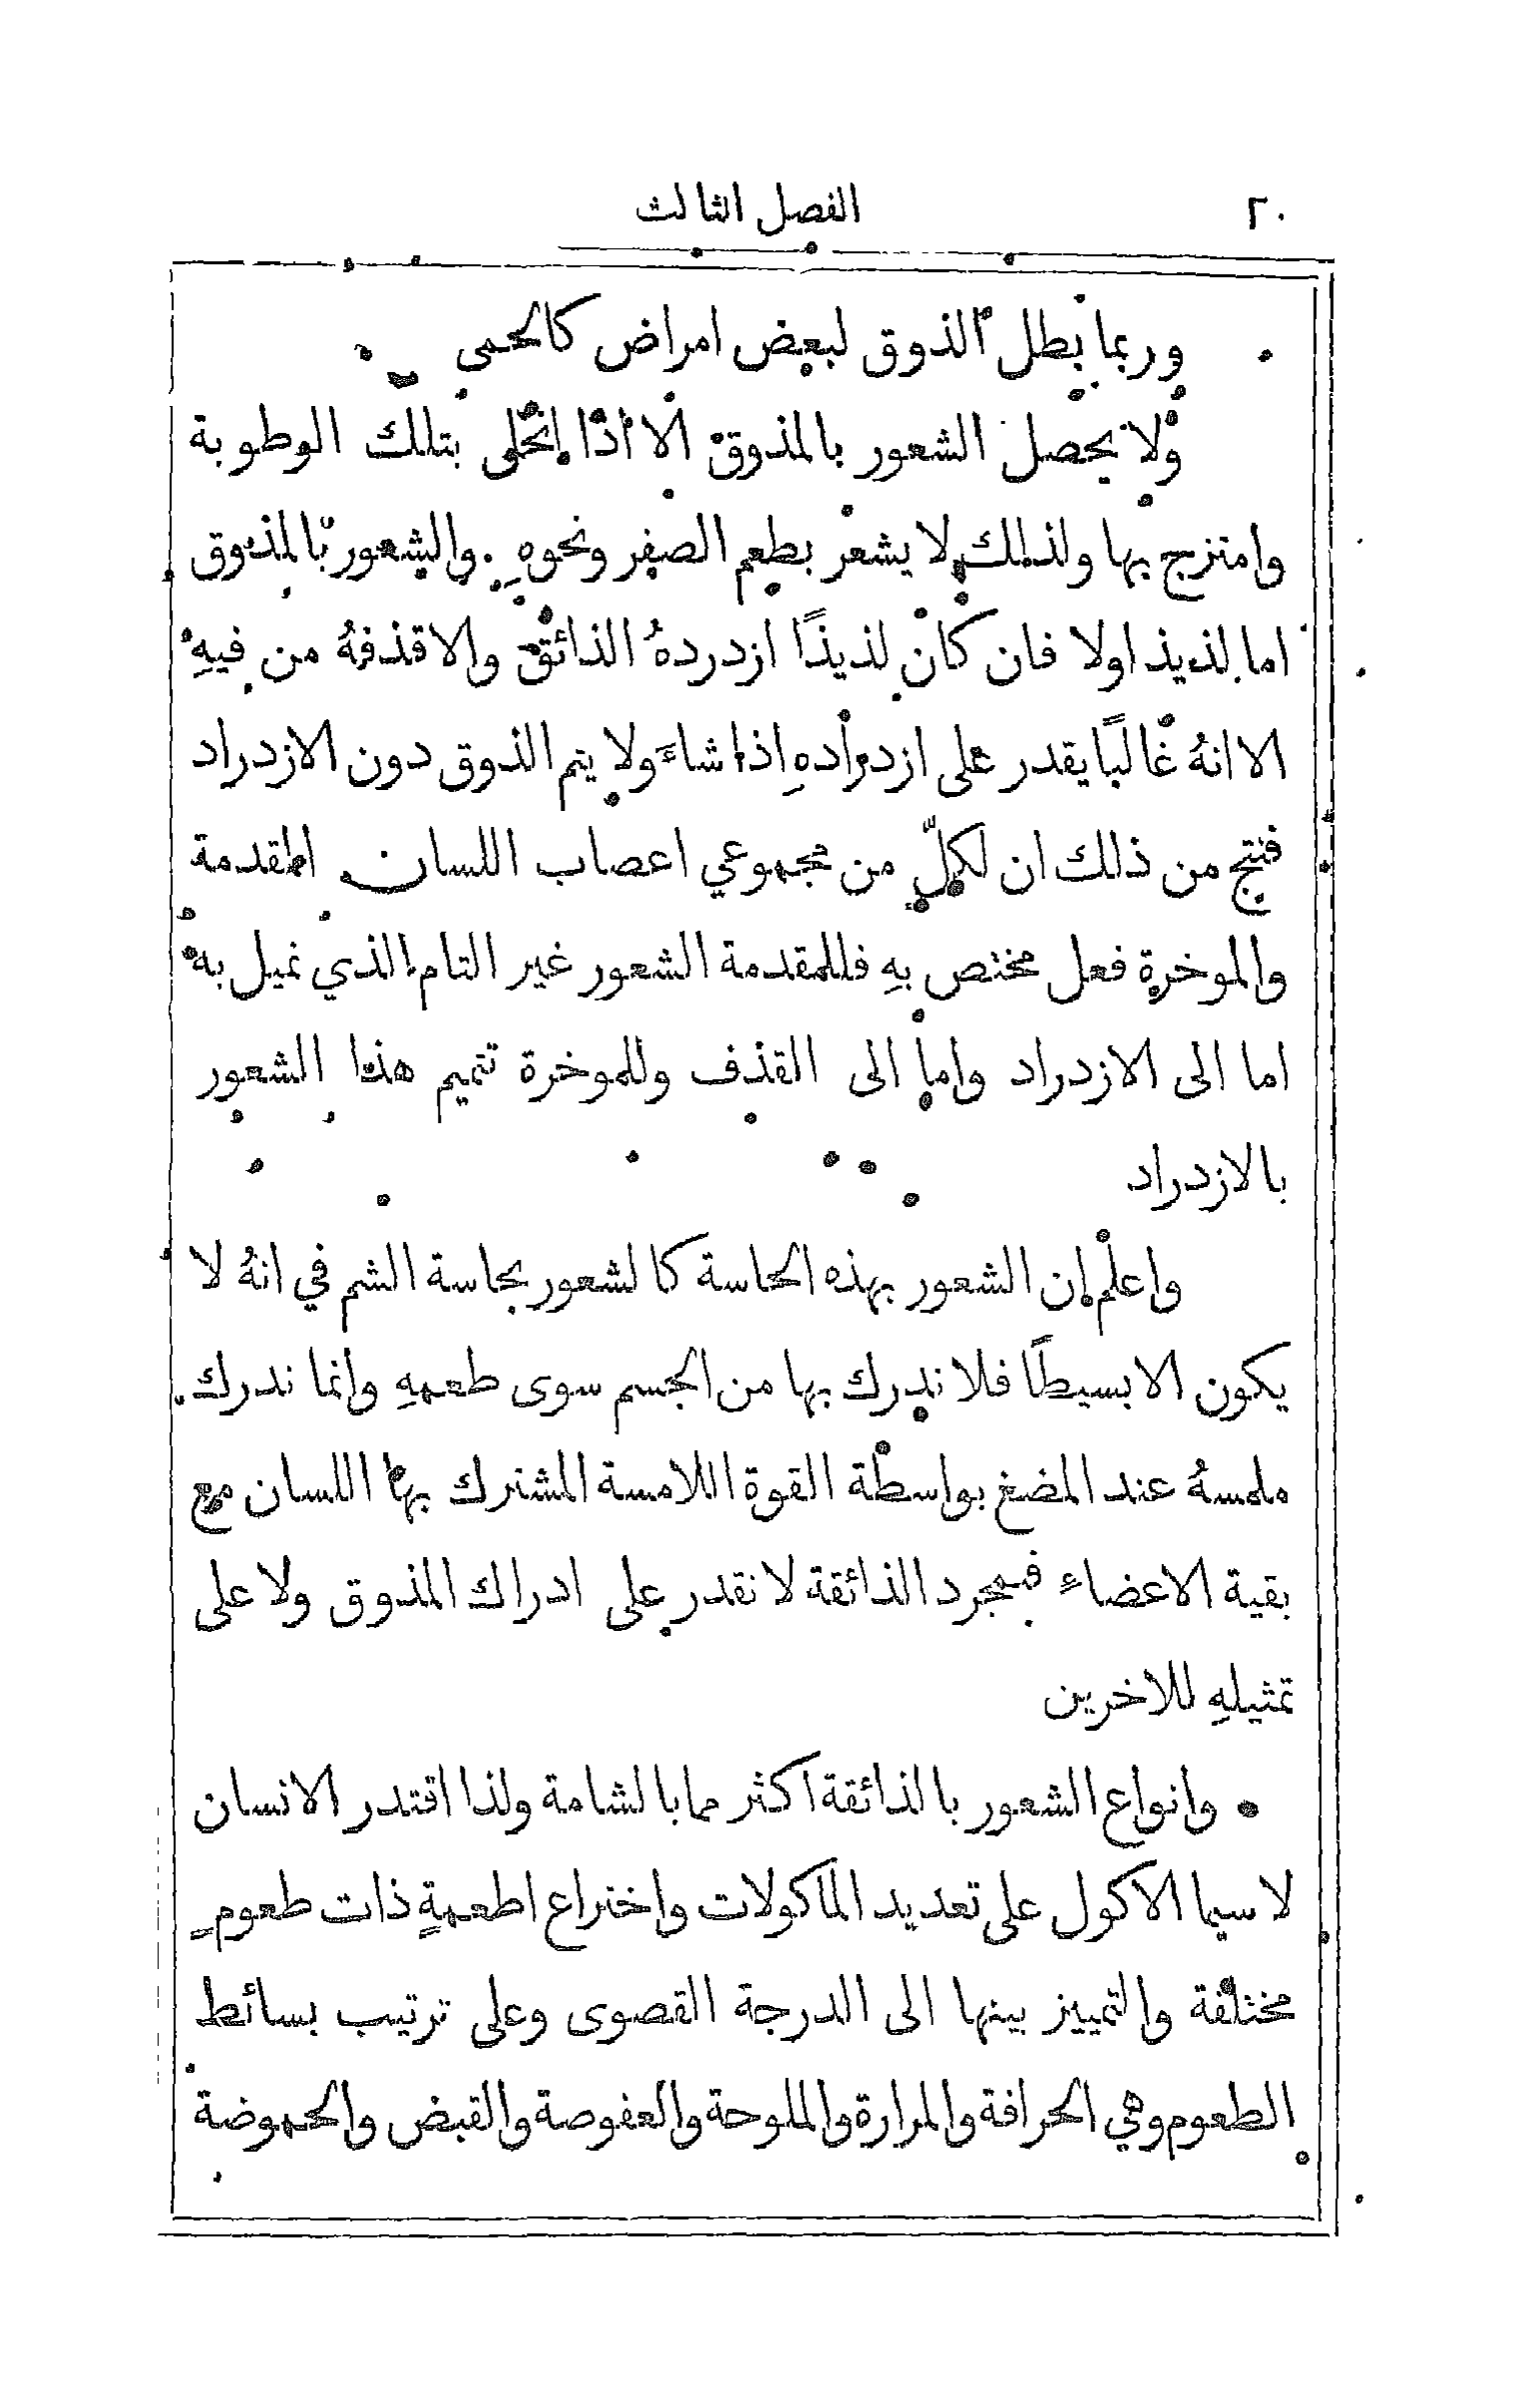 ٢٠ الفصل الثالث
وربما بطل الذوق لبعض امراض كالحمى
ولا يحصل الشعور بالمذوق الا اذا انحلى بتلك الرطوبة
وامتزج بها ولذلك لا يشعر بطعم الصفر ونحوهِ. والشعور بالمذوق
اما لذيذ اولا فان كان لذيذًا ازدردهُ الذائق والا قذفهُ من فيهِ
الا انهُ غالبًا يقدر على ازدرادهِ اذا شاءَ ولا يتم الذوق دون الازدراد
فنتج من ذلك ان لكلٍّ من مجموعي اعصاب اللسان المقدمة
والموخرة فعل مختص بهِ فللمقدمة الشعور غير التام الذي نميل به
اما الى الازدراد واما الى القذف وللموخرة تتميم هذا الشعور
بالازدراد
واعلم ان الشعور بهذه الحاسة كالشعور بحاسة الشم في انهُ لا
يكون الا بسيطًا فلا ندرك بها من الجسم سوى طعمهِ وانما ندرك
ملمسهُ عند المضغ بواسطة القوة اللامسة المشترك بها اللسان مع
بقية الاعضاءِ فبمجرد الذائقة لا نقدر على ادراك المذوق ولا على
تمثيلهِ للاخرين
وانواع الشعور بالذائقة اكثر مما بالشامة ولذا اقتدر الانسان
لا سيما الاكول على تعديد المأكولات واختراع اطعمةٍ ذات طعومٍ
مختلفة والتمييز بينها الى الدرجة القصوى وعلى ترتيب بسائط
الطعوم وهي الحرافة والمرارة والملوحة والعفوصة والقبض والحموضة